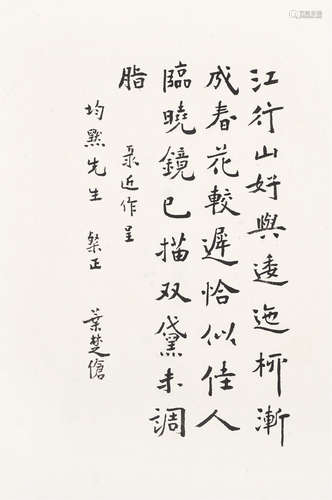 江行山好與逶迤柳漸
成春花較遲恰似佳人
臨曉鏡已描双黛未調
脂
录近作呈
均默先生 粲正
葉楚傖